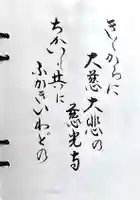 きくからに
大慈大悲の
慈光寺
ちかひも共に
ふかきいわどの